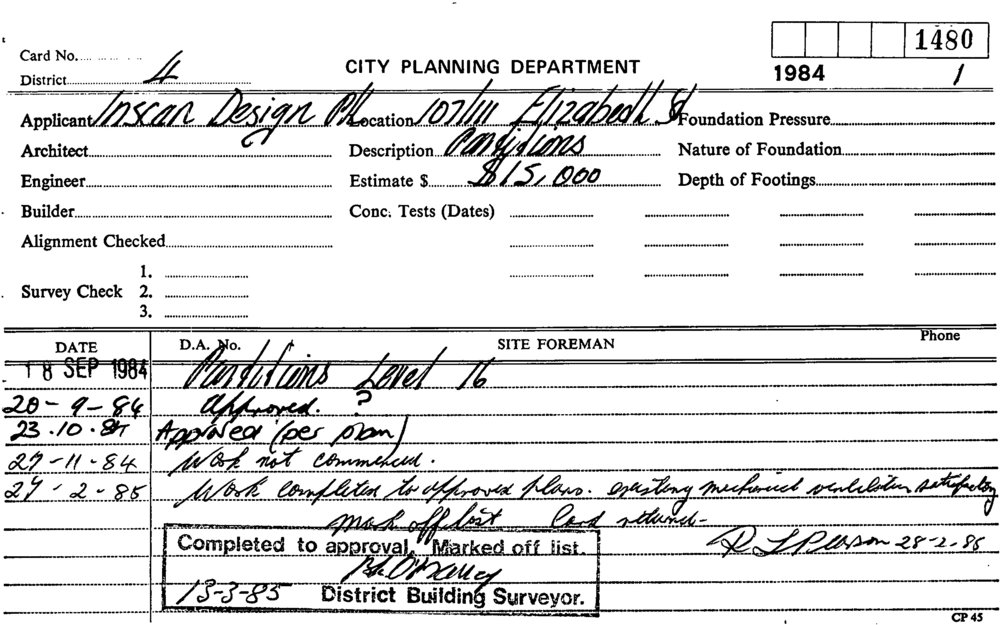 1480
Card No.
District 4
CITY PLANNING DEPARTMENT
1984 1
Applicant Inscan Design P/L Location 107/111 Elizabeth St Foundation Pressure
Architect Description Partitions Nature of Foundation
Engineer Estimate $ $15,000 Depth of Footings
Builder Conc. Tests (Dates)
Alignment Checked
1.
Survey Check 2.
3.
DATE D.A. No. SITE FOREMAN Phone
18 SEP 1984 Partitions Level 16
20-9-84 approved. ?
23.10.84 Approved (per plan)
27-11-84 Work not commenced.
27-2-85 Work completed to approved plans. existing mechanical ventilation satisfactory
mark off list Card returned-
Completed to approval. Marked off list.
28-2-85
13-3-85 District Building Surveyor.
CP 45